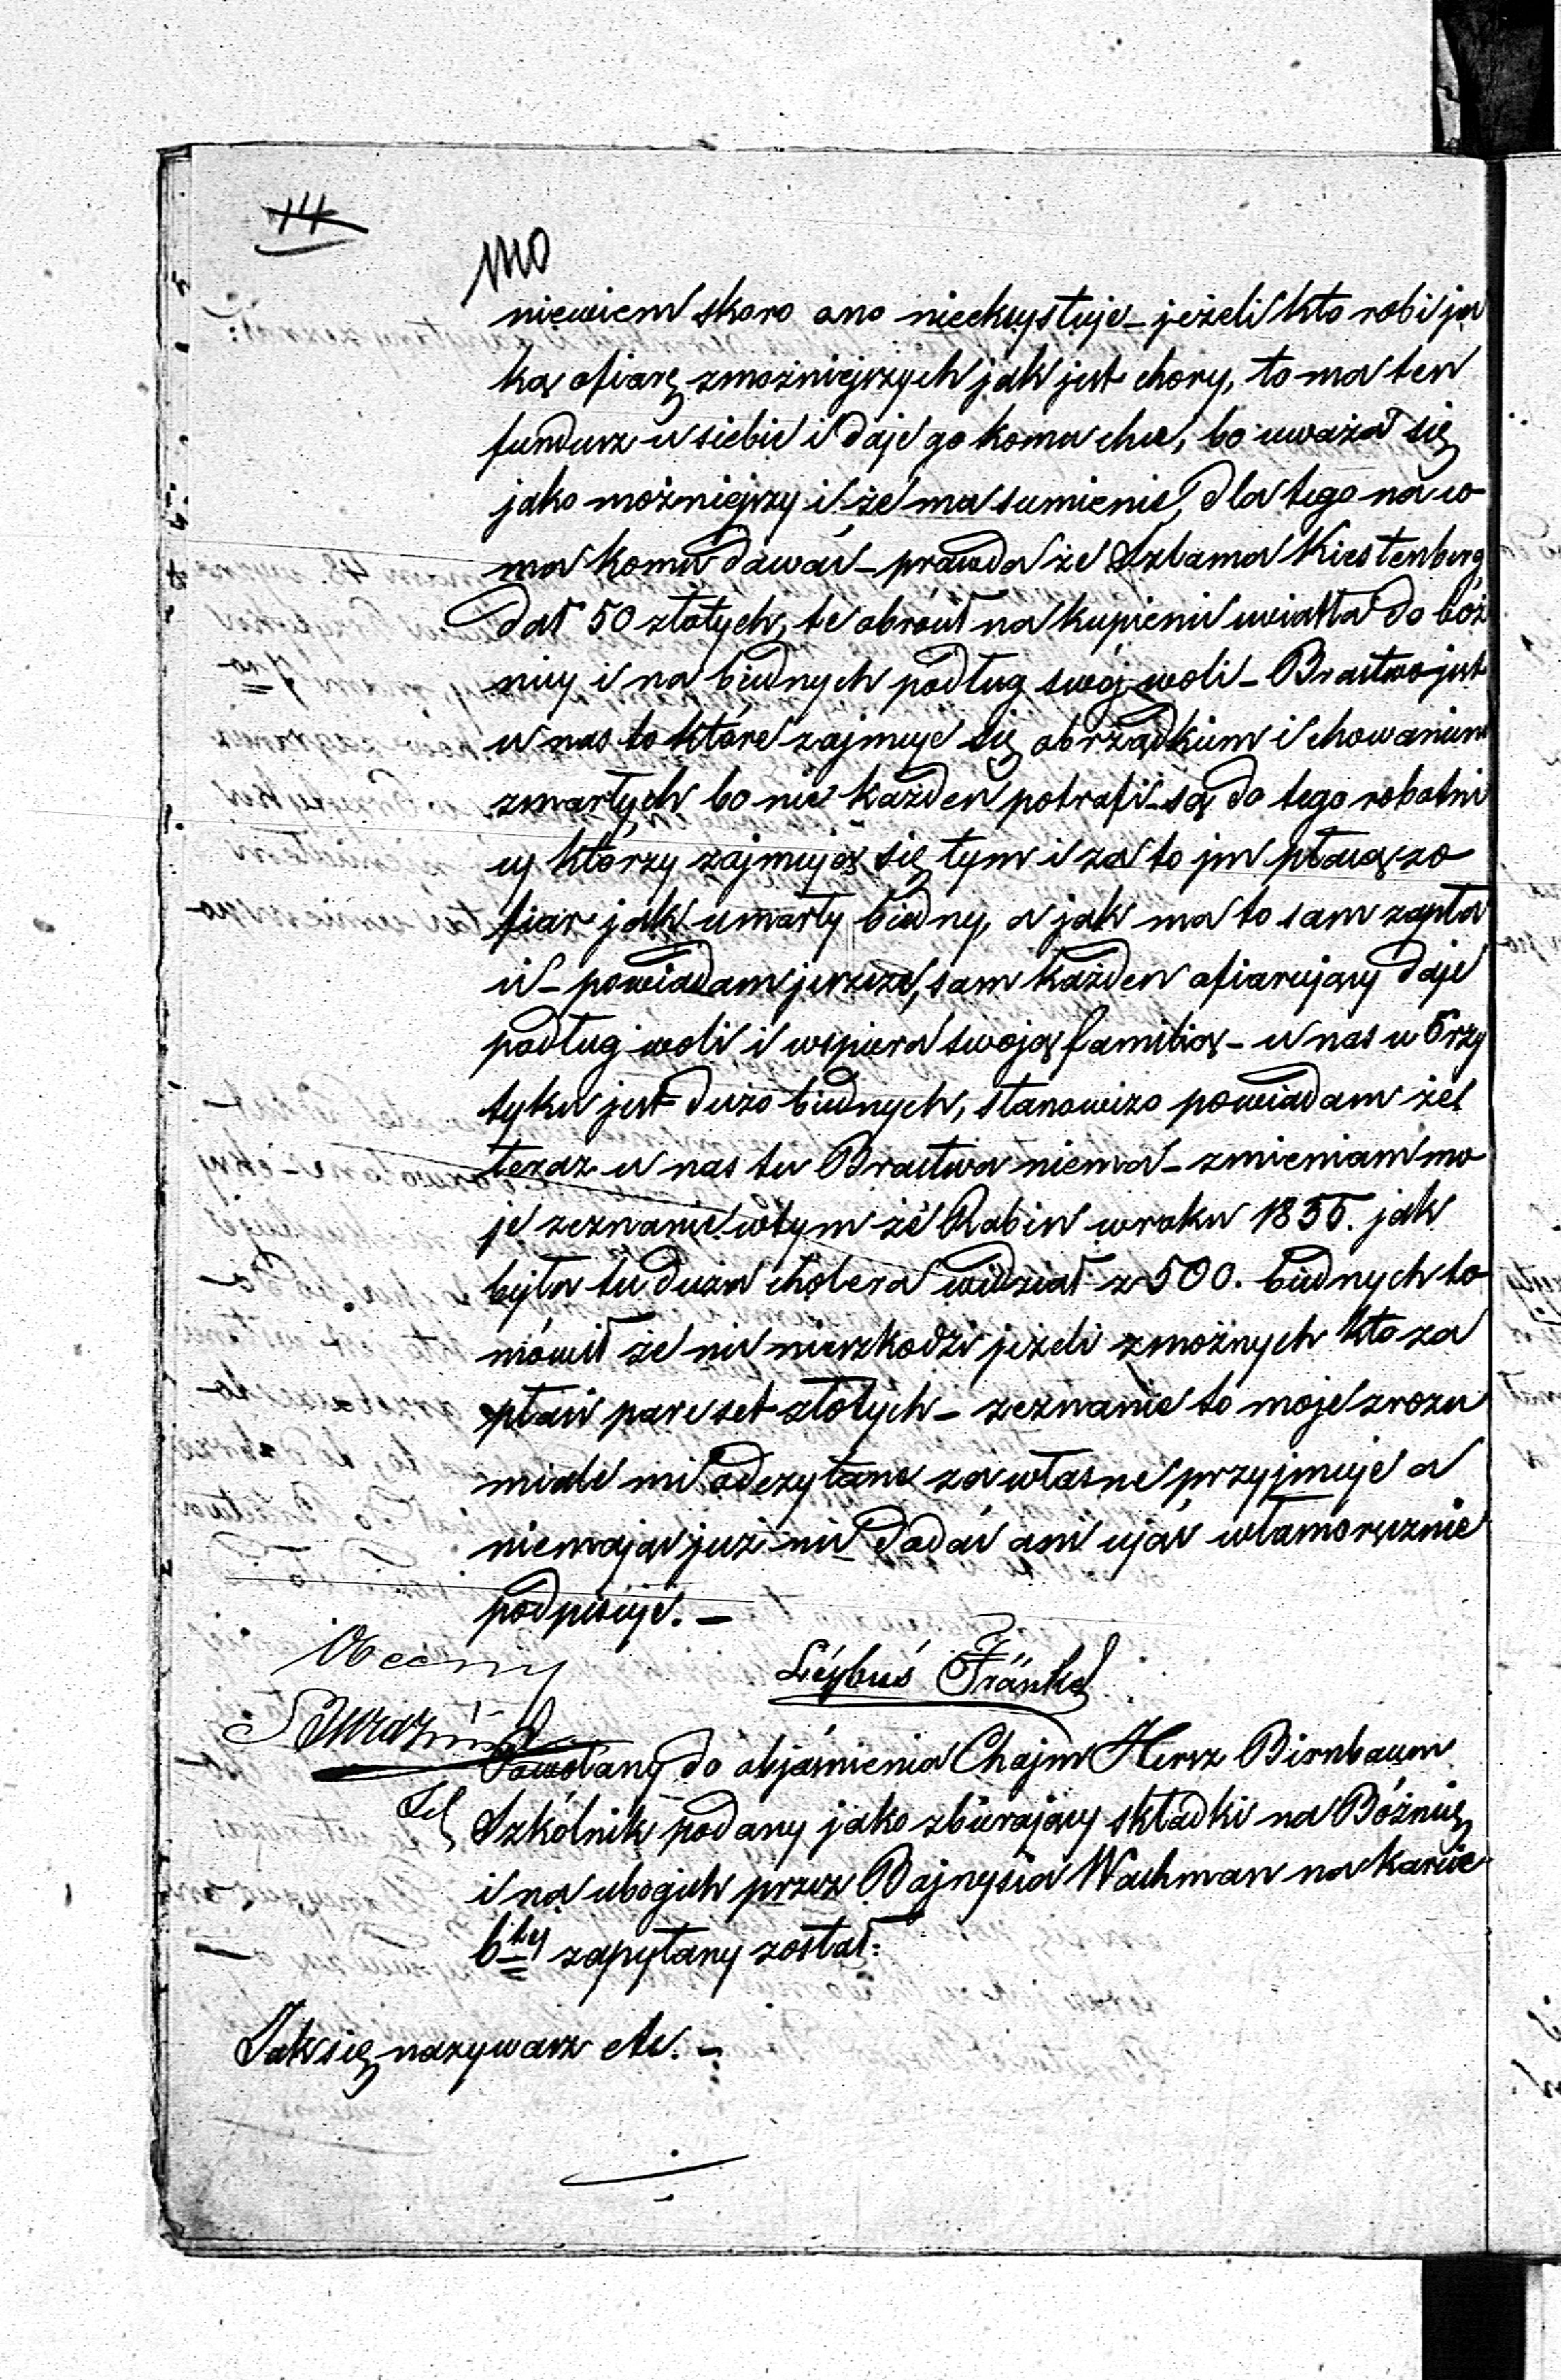 114
mo
niewiem skoro ono nieekzystuje – jeżeli kto robi ja
ką ofiarę zmożniejszych jak jest chory, to ma ten
fundusz u siebie i daje go komu chce, bo uważa się
jako możniejszy i że ma sumienie, dla tego na co
ma komu dawać – prawda że Szlama Kiestenberg
dał 50 złotych, te obrócił na kupienie swiatła do boż
nicy i na biednych podług swoj woli – Bractwo jest
u nas to które zajmuje się obrządkiem i chowaniem
zmarłych bo nie każden potrafi – są do tego robotni
cy którzy zajmują się tym i za to jm płacą zo
fiar jak umarły biedny, a jak ma to sam zapła
ci – powiadam jeszcze, sam każden ofiarujący daje
podług woli i wspiera swoją familią – u nas w Przy
tyku jest dużo biednych, stanowczo powiadam że
teraz u nas tu Bractwa niema – zmieniam mo
je zeznanie wtym że Rabin w roku 1855. jak
była tu duża cholera widział z 500. biednych to
mówił że nic nieszkodzi jeżeli zmożnych kto za
płaci pare set złotych – zeznanie to moje zrozu
miale mi odczytane za własne przyjmuje a
niemając już nic dodać ani ująć własnoręcznie
podpisuje. –
Obecny
Leybuś Fränkel
Powołany do objaśnienia Chajm Hersz Birnbaum
Szkólnik podany jako zbierający składki na Bóżnicę
i na ubogich przez Bajnysia Wachman na karcie
6tej zapytany został:
Jak się nazywasz etc. –